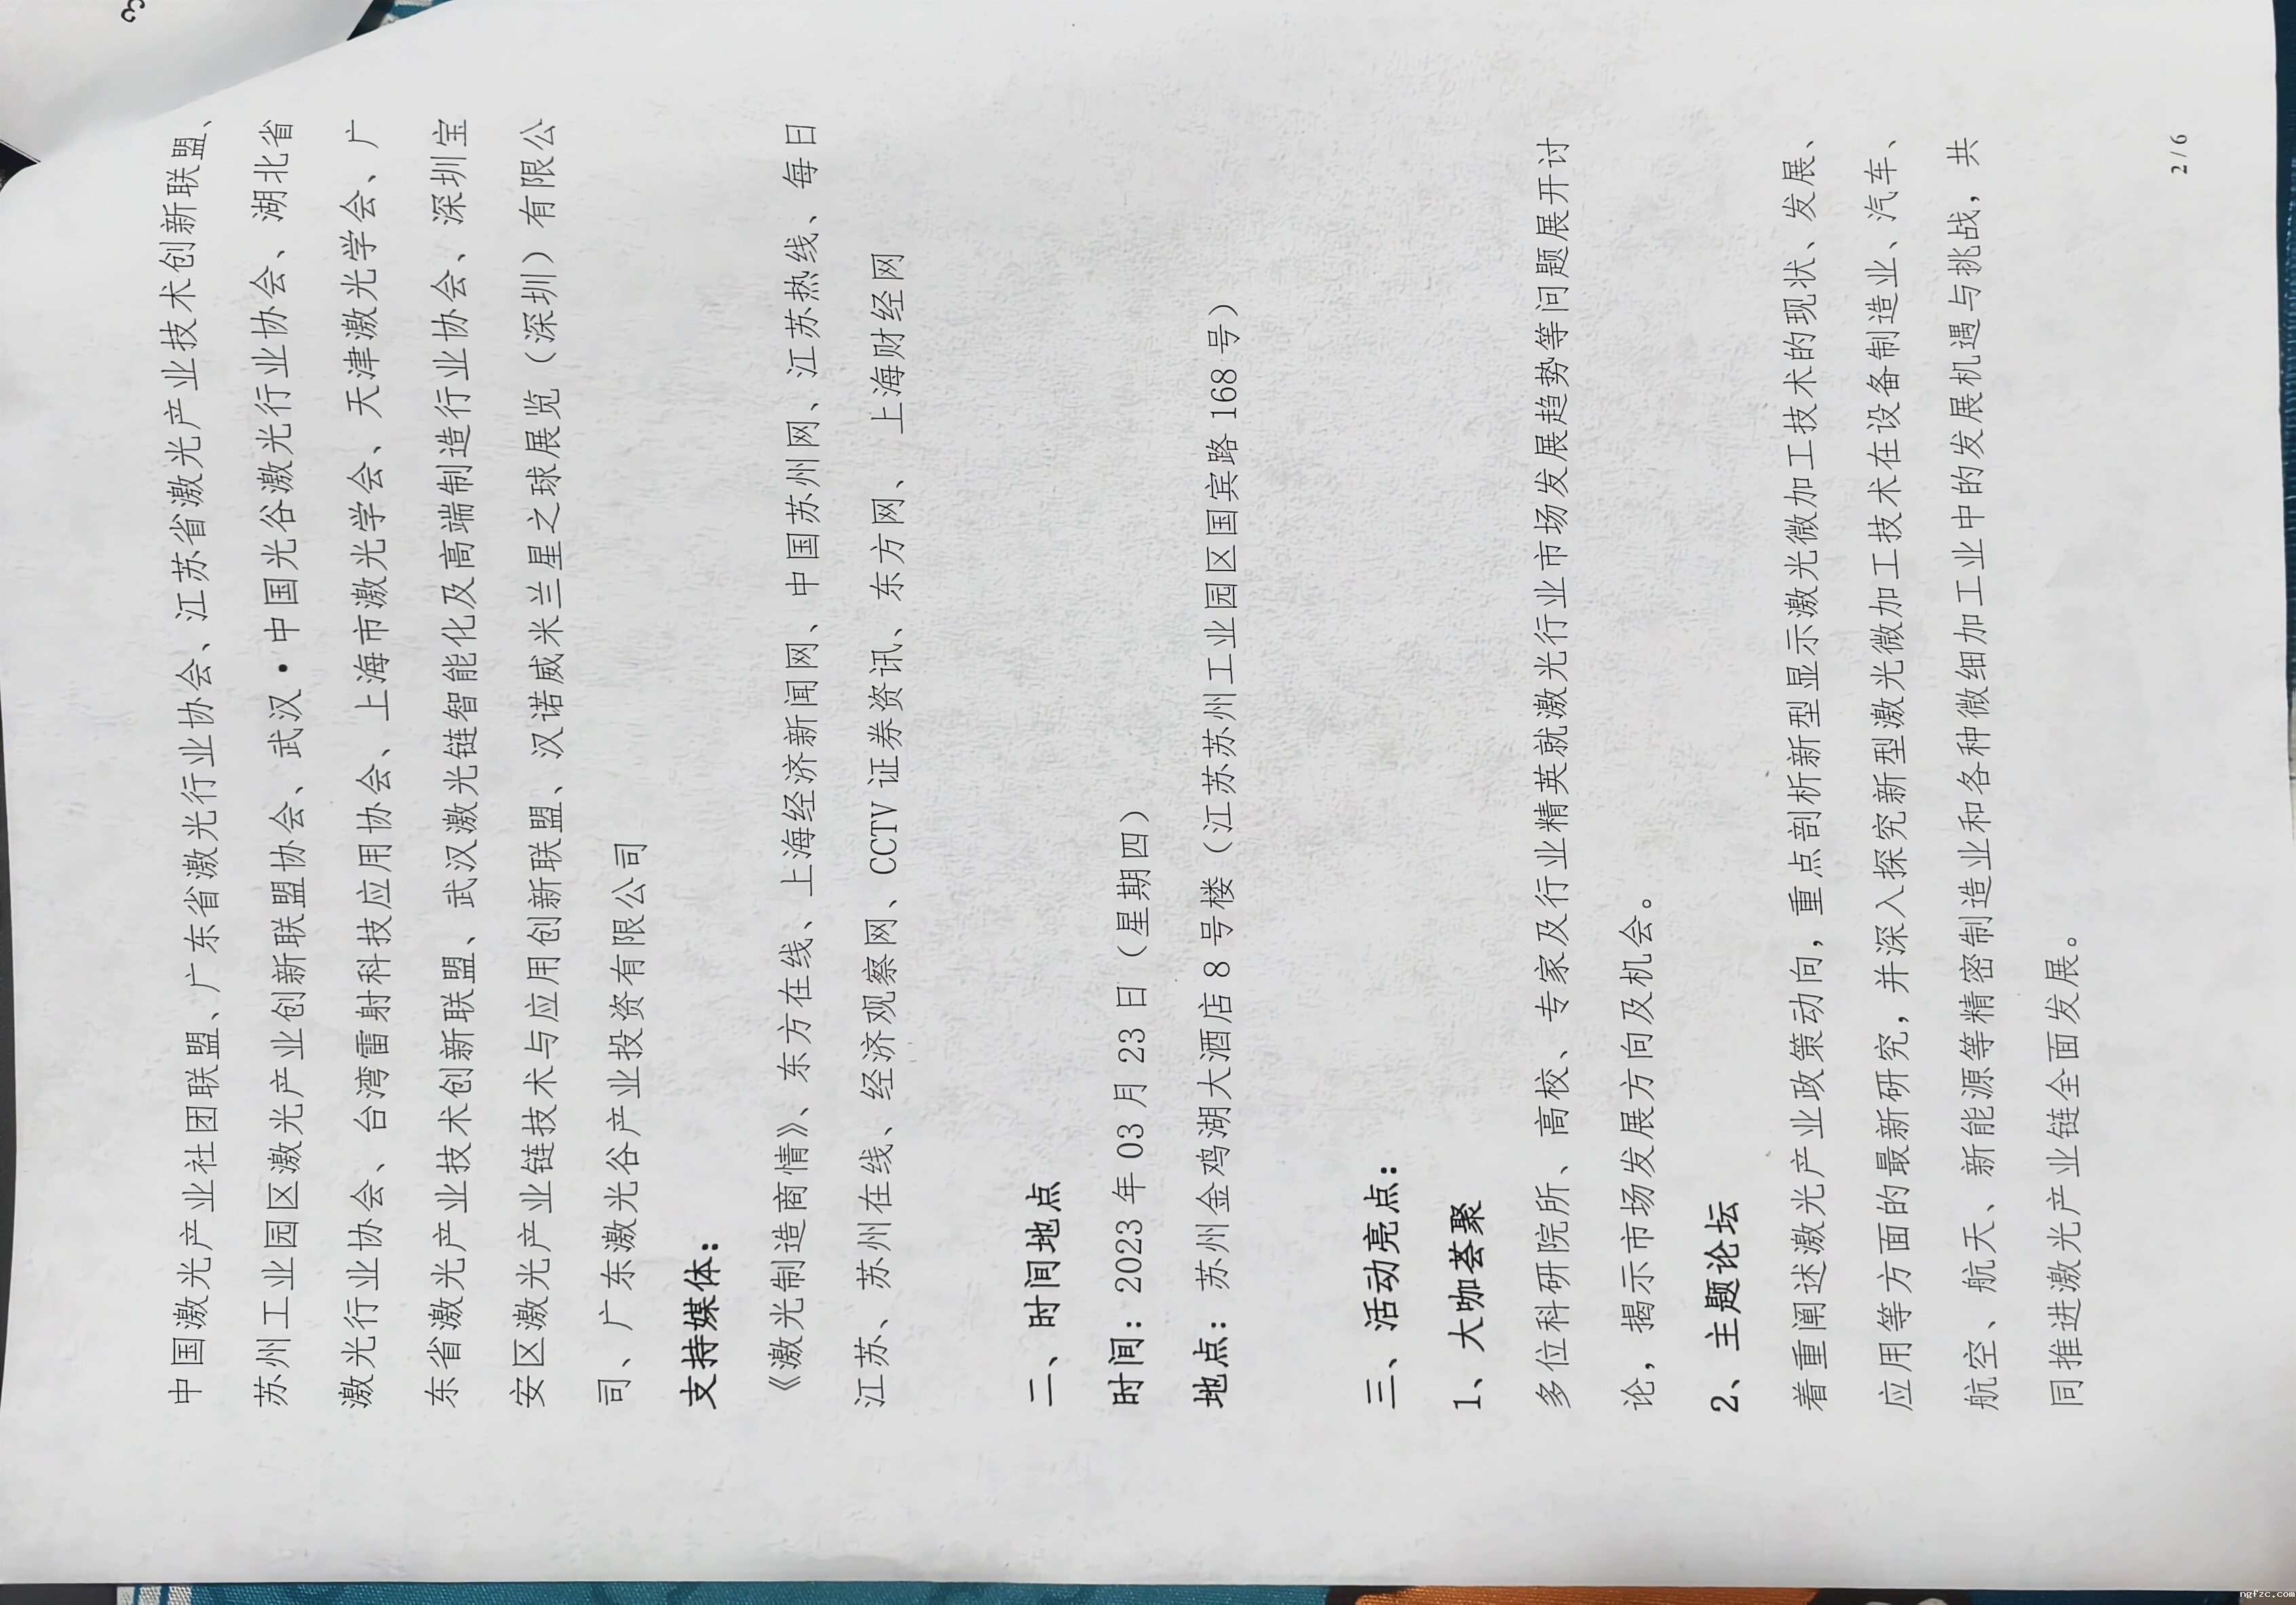 中国激光产业社团联盟、广东省激光行业协会、江苏省激光产业技术创新联盟、
苏州工业园区激光产业创新联盟协会、武汉·中国光谷激光行业协会、湖北省
激光行业协会、台湾雷射科技应用协会、上海市激光学会、天津激光学会、广
东省激光产业技术创新联盟、武汉激光链智能化及高端制造行业协会、深圳宝
安区激光产业链技术与应用创新联盟、汉诺威米兰星之球展览（深圳）有限公
司、广东激光谷产业投资有限公司
支持媒体：
《激光制造商情》、东方在线、上海经济新闻网、中国苏州网、江苏热线、每日
江苏、苏州在线、经济观察网、CCTV 证券资讯、东方网、上海财经网
二、时间地点
时间：2023 年 03 月 23 日（星期四）
地点： 苏州金鸡湖大酒店 8 号楼（江苏苏州工业园区国宾路 168 号）
三、活动亮点：
1、大咖荟聚
多位科研院所、高校、专家及行业精英就激光行业市场发展趋势等问题展开讨
论，揭示市场发展方向及机会。
2、主题论坛
着重阐述激光产业政策动向，重点剖析新型显示激光微加工技术的现状、发展、
应用等方面的最新研究，并深入探究新型激光微加工技术在设备制造业、汽车、
航空、航天、新能源等精密制造业和各种微细加工业中的发展机遇与挑战，共
同推进激光产业链全面发展。
2 / 6
3
ngfzc.com